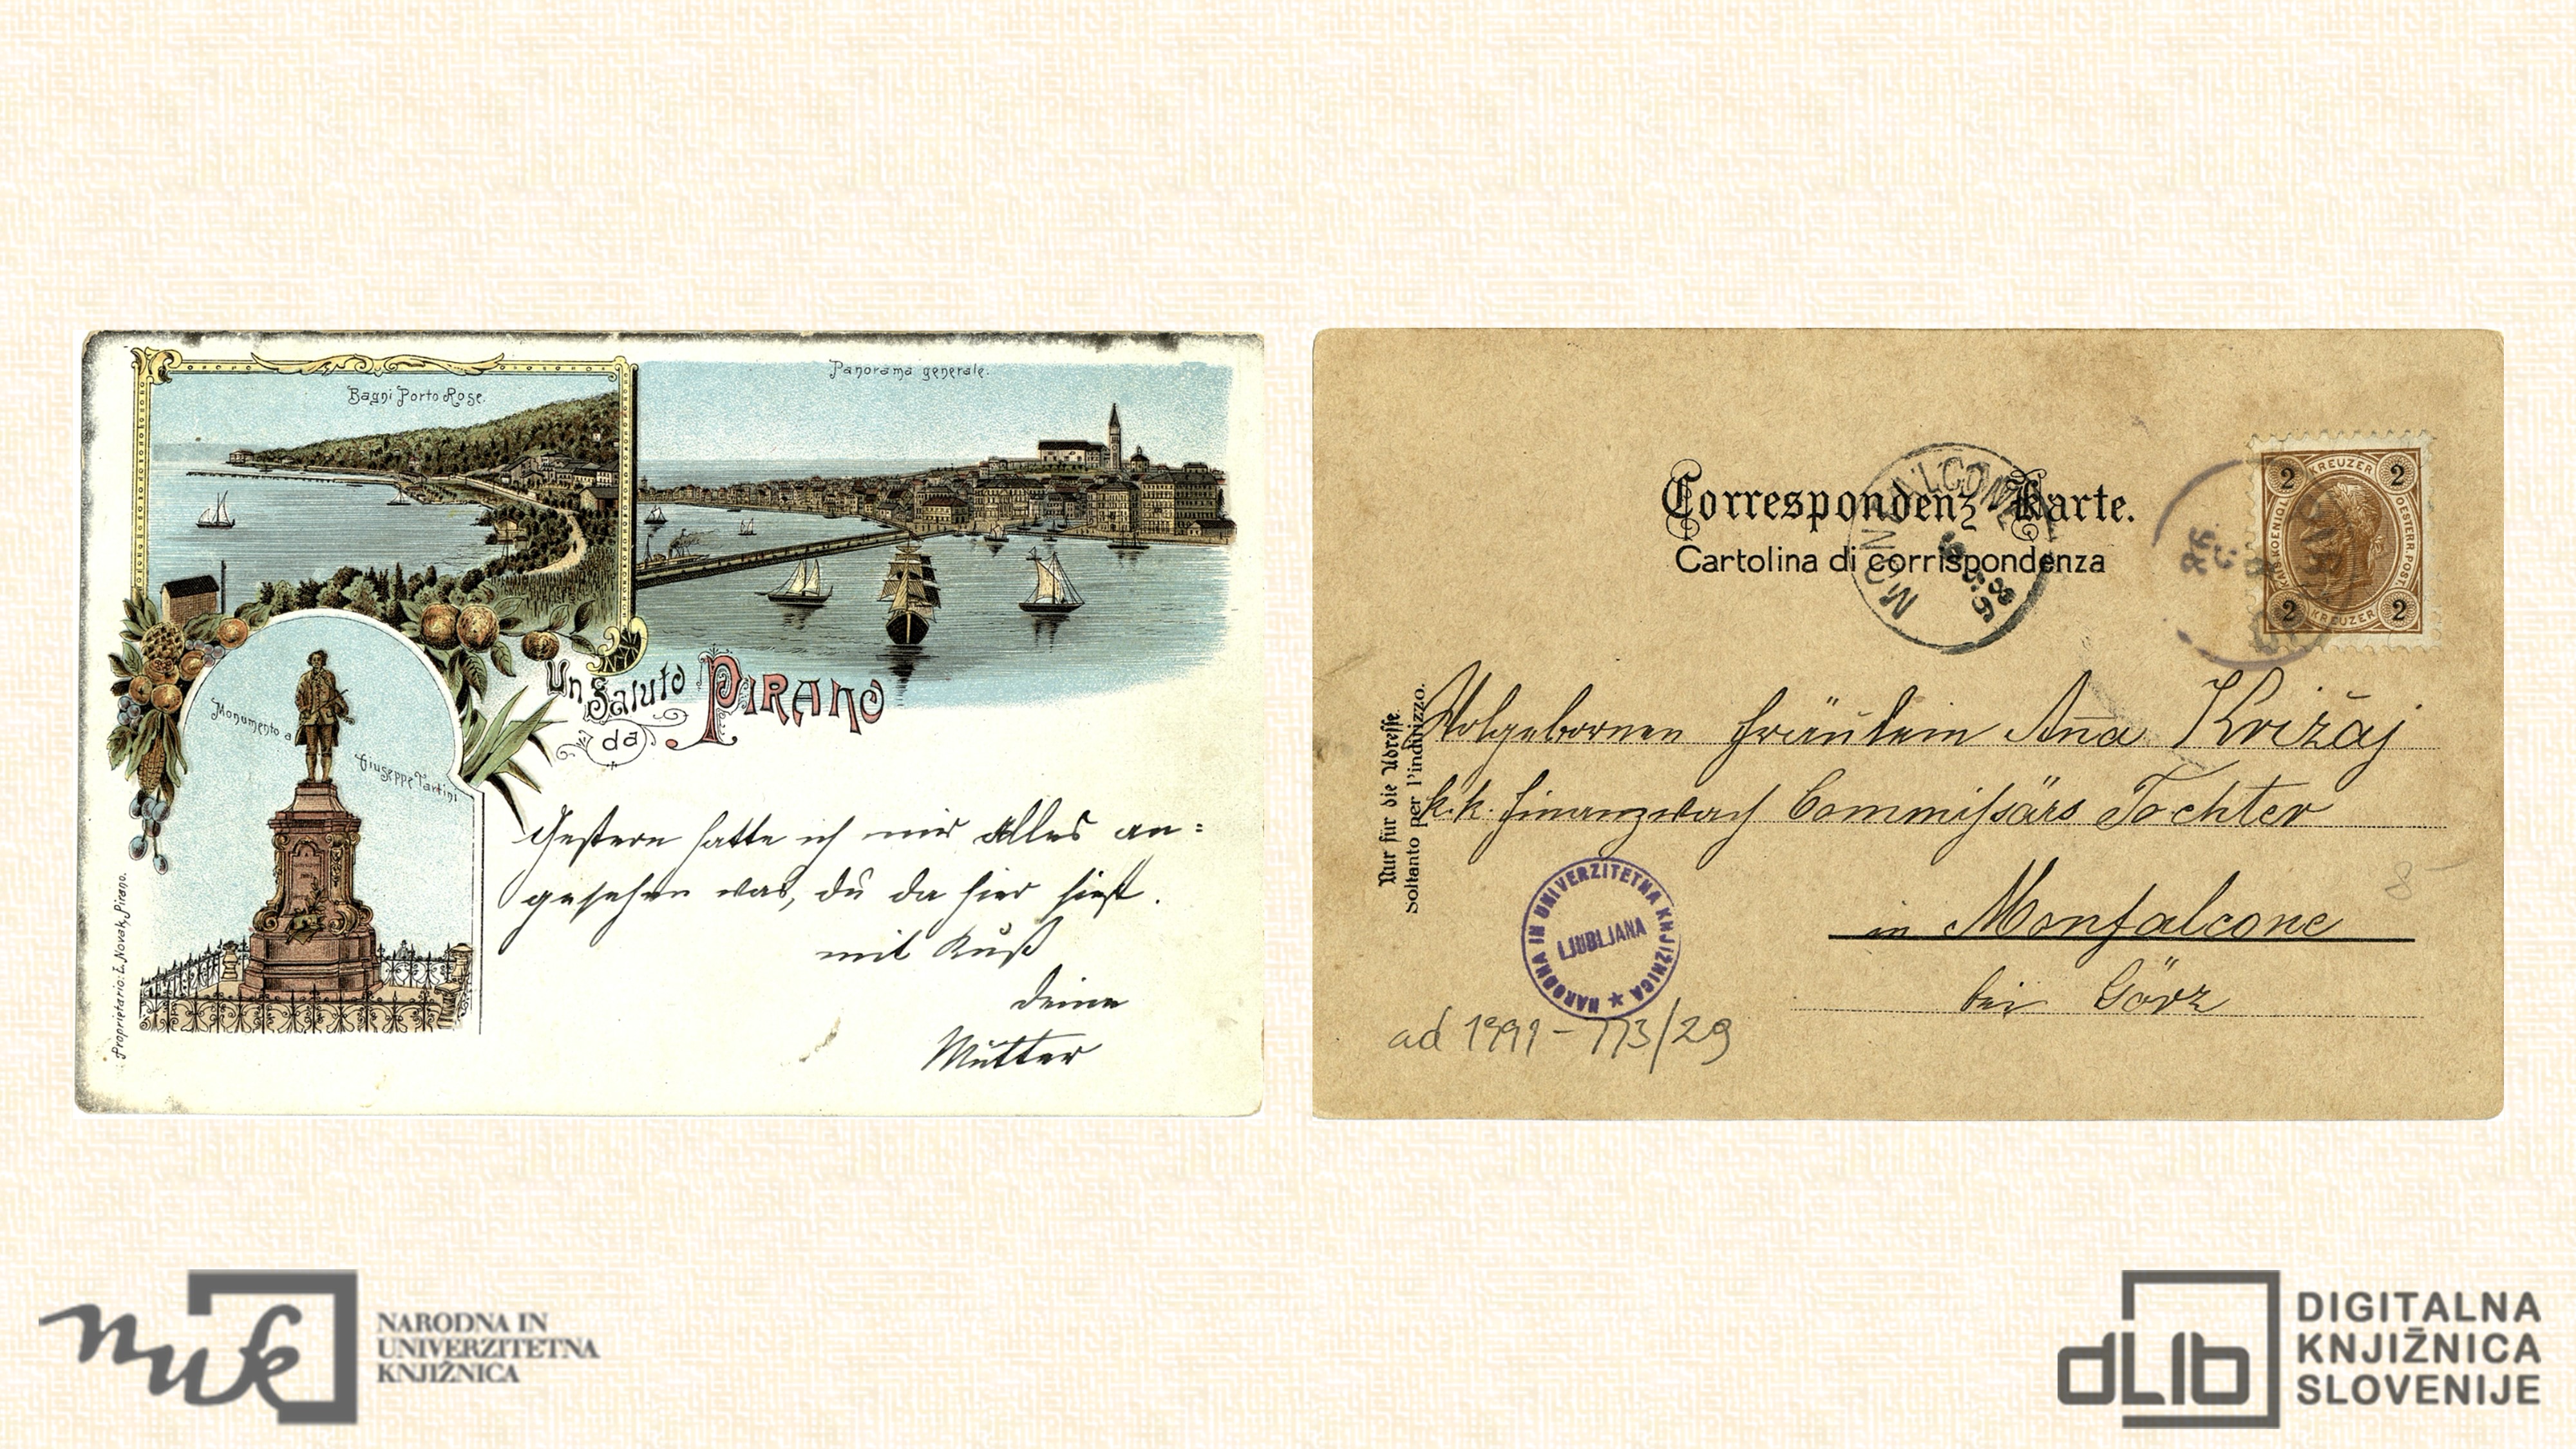 Bagni Porto Rose.
Panorama generale.
Monumento a Giuseppe Tartini
Un Saluto
da PIRANO
Proprietario: L. Novak, Pirano.
Gestern hatte ich mir Alles an=
gesehen was, du da hier siest.
mit Kuß
deine
Mutter
Correspondenz-Karte.
Cartolina di corrispondenza
MONFALCONE
2 KREUZER 2
KAIS. KOENIGL. OESTERR. POST
2 KREUZER 2
Nur für die Adresse.
Soltanto per l'indirizzo.
Wolgebornen Fräulein Anna Križaj
k. k. Finanzwach Commissärs Tochter
in Monfalcone
bei Görz
NARODNA IN UNIVERZITETNA KNJIŽNICA
LJUBLJANA
ad 1991-113/29
8
nuk
NARODNA IN
UNIVERZITETNA
KNJIŽNICA
dLIb
DIGITALNA
KNJIŽNICA
SLOVENIJE